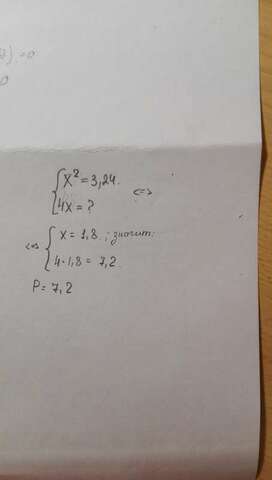 ) = 0
x² = 3,24.
4x = ?
<=>
<=>
x = 1,8. ; значит:
4·1,8 = 7,2.
P = 7,2